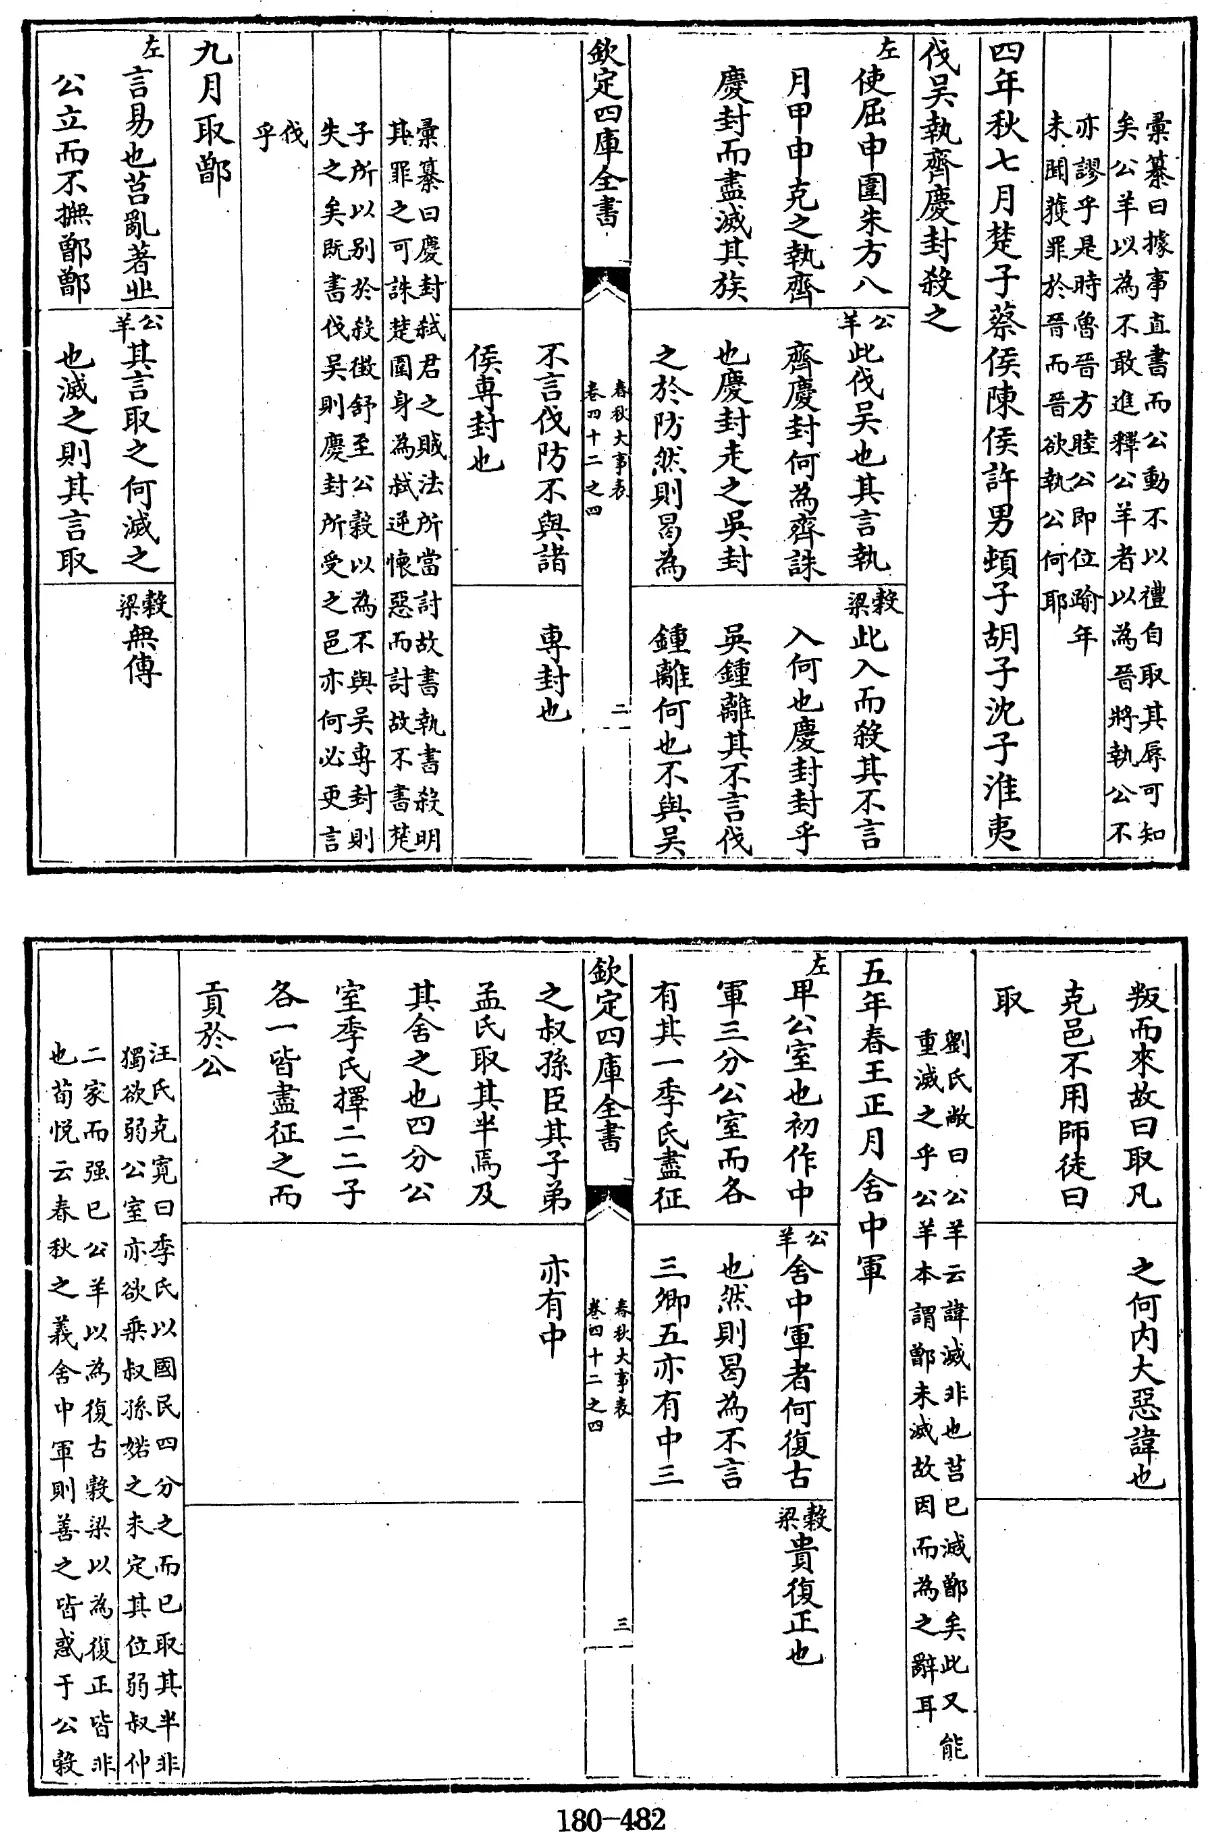 彚纂曰據事直書而公動不以禮自取其辱可知
矣公羊以為不敢進釋公羊者以為晉將執公不
亦謬乎是時魯晉方睦公即位踰年
未聞獲罪於晉而晉欲執公何耶
四年秋七月楚子蔡侯陳侯許男頓子胡子沈子淮夷
伐吴執齊慶封殺之
左
使屈申圍朱方八
月甲申克之執齊
慶封而盡滅其族
公羊
此伐吴也其言執
齊慶封何為齊誅
也慶封走之吴封
之於防然則曷為
不言伐防不與諸
侯専封也
穀梁
此入而殺其不言
入何也慶封封乎
吴鍾離其不言伐
鍾離何也不與吴
専封也
欽定四庫全書
春秋大事表
卷四十二之四
二
彚纂曰慶封弑君之賊法所當討故書執書殺明
其罪之可誅楚圍身為弑逆懐惡而討故不書楚
子所以别於殺徴舒至公穀以為不與吴専封則
失之矣既書伐吴則慶封所受之邑亦何必更言
伐
乎
九月取鄫
左
言易也莒亂著丘
公立而不撫鄫鄫
公羊
其言取之何滅之
也滅之則其言取
穀梁
無傳
叛而來故曰取凡
克邑不用師徒曰
取
之何内大惡諱也
劉氏敞曰公羊云諱滅非也莒已滅鄫矣此又能
重滅之乎公羊本謂鄫未滅故因而為之辭耳
五年春王正月舍中軍
左
卑公室也初作中
軍三分公室而各
有其一季氏盡征
之叔孫臣其子弟
孟氏取其半焉及
其舍之也四分公
室季氏擇二二子
各一皆盡征之而
貢於公
公羊
舍中軍者何復古
也然則曷為不言
三卿五亦有中三
亦有中
穀梁
貴復正也
欽定四庫全書
春秋大事表
卷四十二之四
三
汪氏克寛曰季氏以國民四分之而已取其半非
獨欲弱公室亦欲乗叔孫婼之未定其位弱叔仲
二家而强已公羊以為復古穀梁以為復正皆非
也荀悅云春秋之義舍中軍則善之皆惑于公穀
180-482